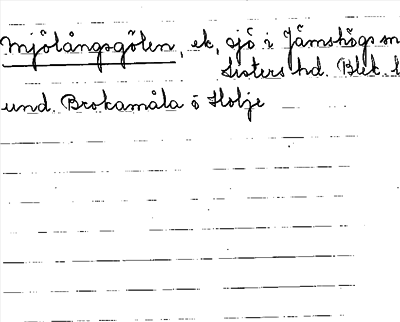 Mjölångsgölen, ek, sjö i Jämshögs sn
Listers hd. Blek. l
und. Brokamåla o Holje